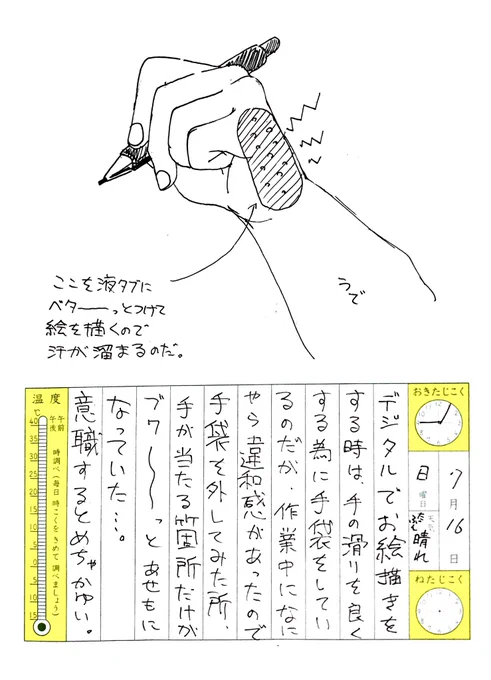 ここを液タブに
ベター――っとつけて
絵を描くので
汗が溜まるのだ。
うで
おきたじこく
7月16日
日曜日
天気
晴れ
ねたじこく
デジタルでお絵描きを
する時は、手の滑りを良く
する為に手袋をしてい
るのだが、作業中になに
やら違和感があったので
手袋を外してみた所、
手が当たる箇所だけが
ブワ〜〜っとあせもに
なっていた…。
意職するとめちゃかゆい。
温度
℃
午前
午後
時調べ(毎日時こくをきめて調べましょう)
40
35
30
25
20
15
10
5
0
5
10
15